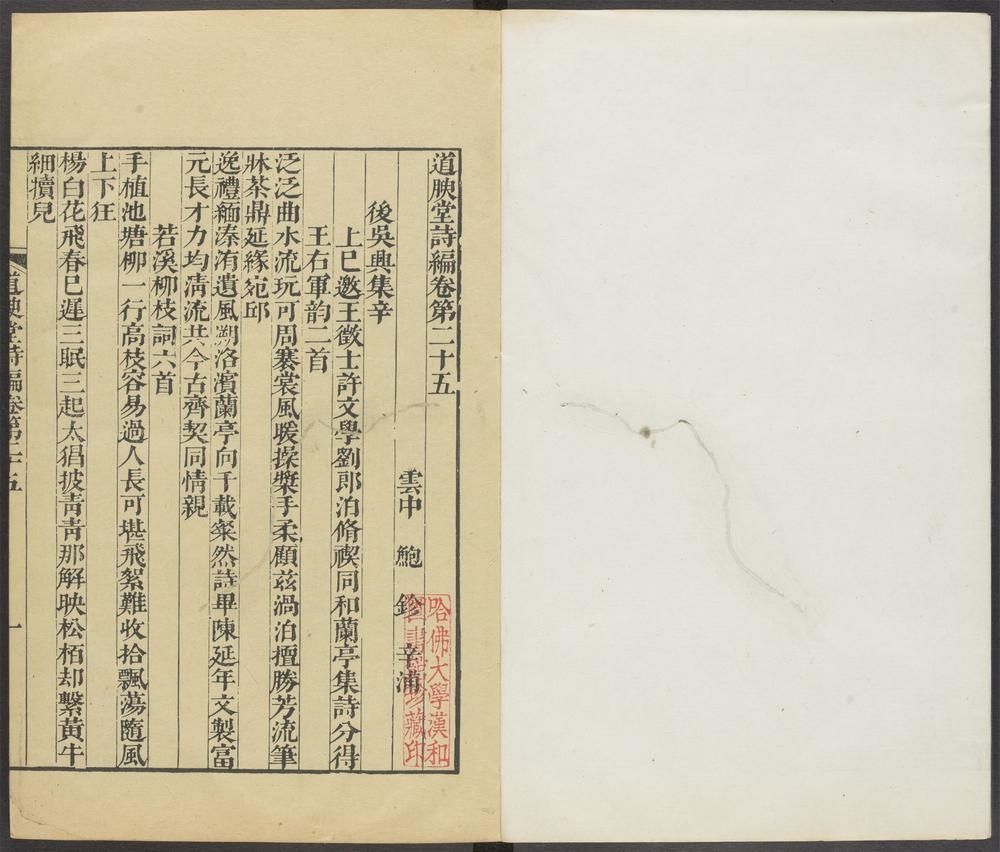 道腴堂詩編卷第二十五
雲中 鮑 鉁 辛浦
後吳興集辛
上巳邀王徵士許文學劉郎泊脩禊同和蘭亭集詩分得
王右軍韵二首
泛泛曲水流玩可周褰裳風暖操槳手柔顧茲渦泊擅勝芳流筆
牀茶鼎延緣宛邱
逸禮緬溱洧遺風溯洛濱蘭亭向千載粲然詩畢陳延年文製富
元長才力均淸流共今古齊契同情親
若溪柳枝詞六首
手植池塘柳一行高枝容易過人長可堪飛絮難收拾飄蕩隨風
上下狂
楊白花飛春巳遲三眠三起太猖披靑靑那解映松栢却繫黃牛
細犢兒
道腴堂詩編卷第二十五
一
哈佛大學漢和
圖書館珍藏印